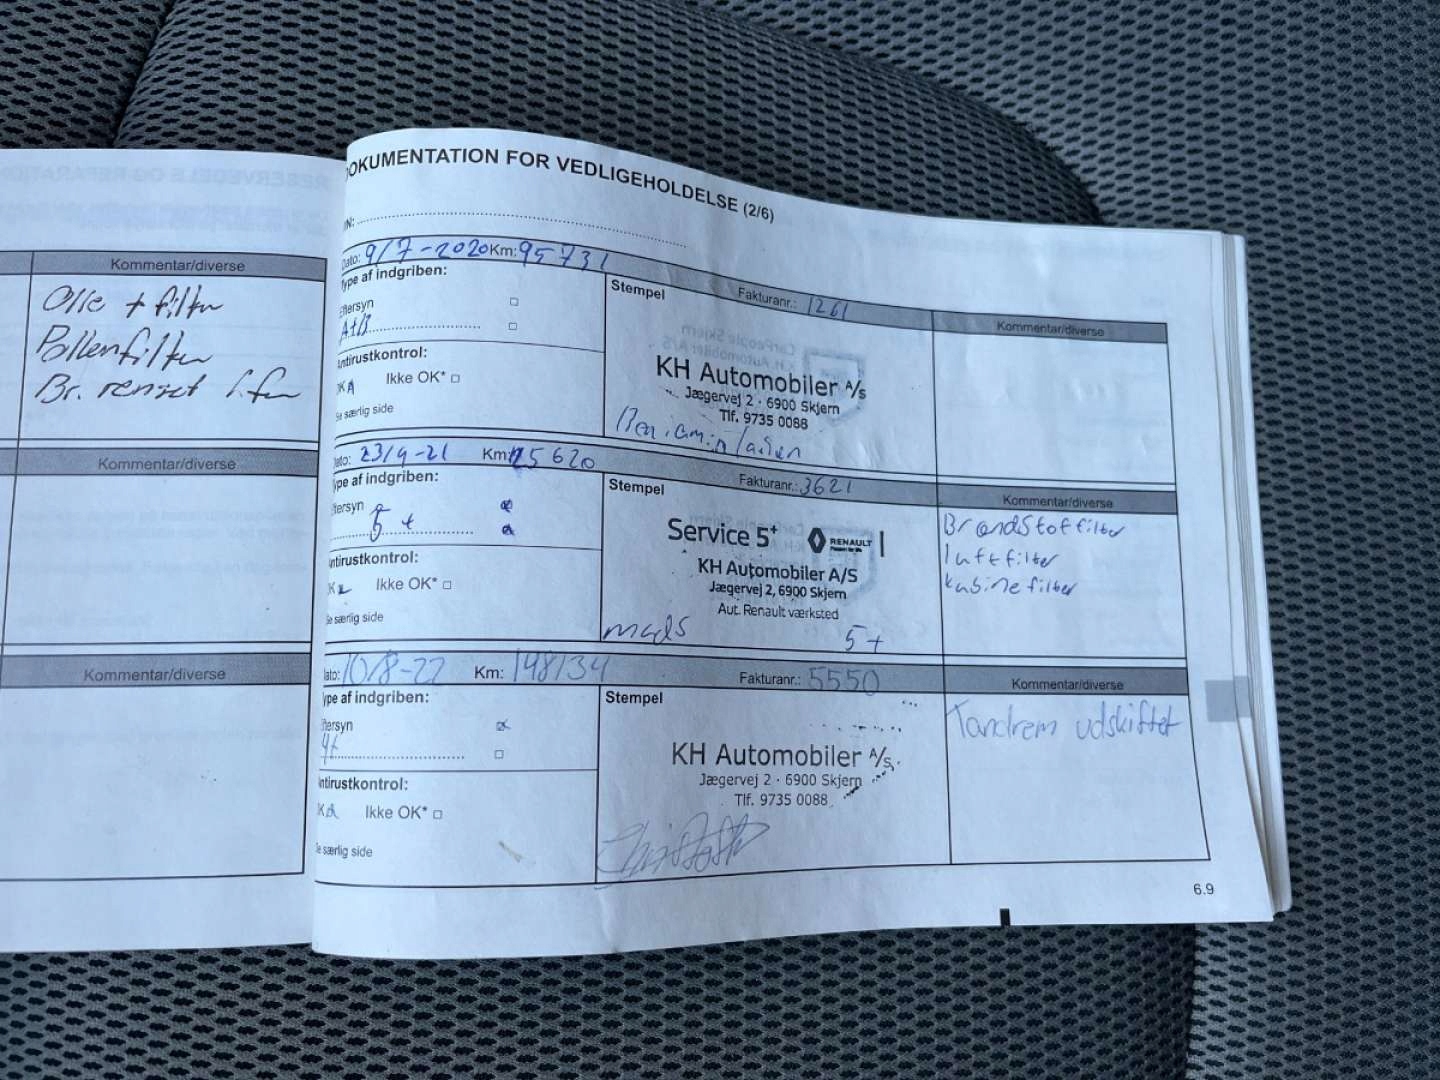 Kommentar/diverse
Olie + filter
Pollenfilter
Br. renset
Kommentar/diverse
Kommentar/diverse
DOKUMENTATION FOR VEDLIGEHOLDELSE (2/6)
Dato: 9/7-2020 Km: 95731
Type af indgriben:
Eftersyn
A+B
Antirustkontrol:
OK Ikke OK*
Se særlig side
Stempel
Fakturanr.: 1261
KH Automobiler A/S
Jægervej 2 · 6900 Skjern
Tlf. 9735 0088
Kommentar/diverse
Dato: 23/4-21 Km: 125620
Type af indgriben:
Eftersyn
5+
Antirustkontrol:
OK Ikke OK*
Se særlig side
Stempel
Fakturanr.: 3621
Service 5+ RENAULT
KH Automobiler A/S
Jægervej 2, 6900 Skjern
Aut. Renault værksted
mads 5+
Kommentar/diverse
Brændstoffilter
luftfilter
kabinefilter
Dato: 10/8-22 Km: 148134
Type af indgriben:
Eftersyn
4+
Antirustkontrol:
OK Ikke OK*
Se særlig side
Stempel
Fakturanr.: 5550
KH Automobiler A/S
Jægervej 2 · 6900 Skjern
Tlf. 9735 0088
Kommentar/diverse
Tandrem udskiftet
6.9